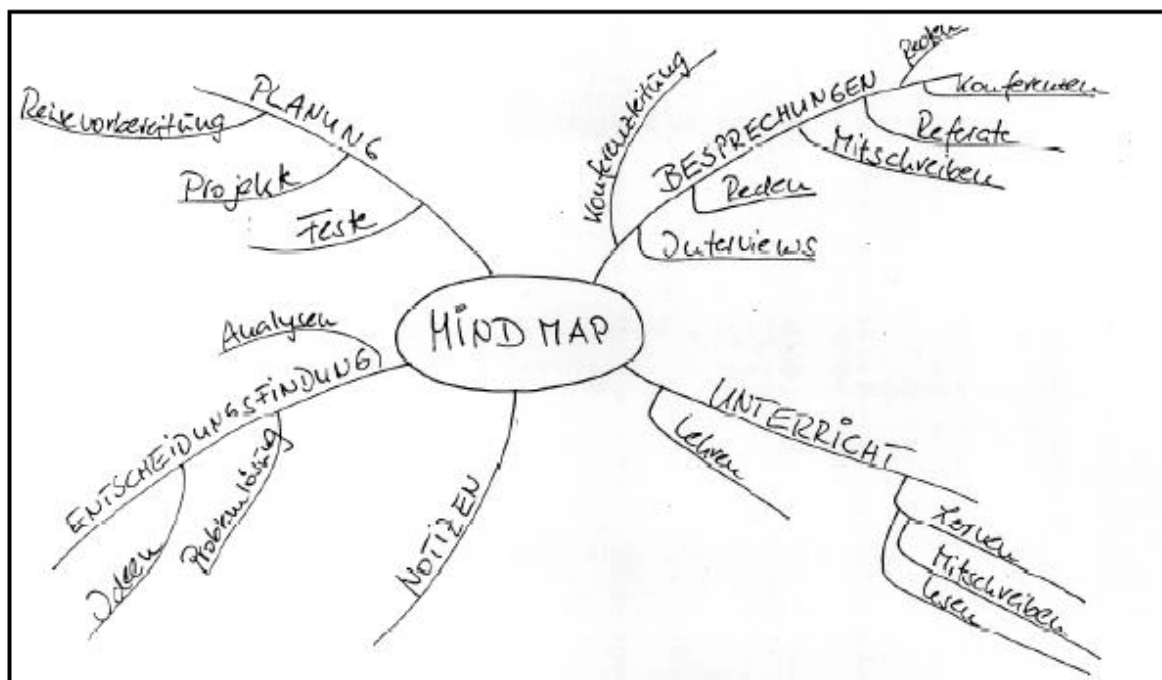 MIND MAP
PLANUNG
Reisevorbereitung
Projekte
Feste
BESPRECHUNGEN
Konferenzleitung
Konferenzen
Referate
Mitschreiben
Reden
Interviews
UNTERRICHT
Lehren
Lernen
Mitschreiben
Lesen
NOTIZEN
ENTSCHEIDUNGSFINDUNG
Analysen
Problemlösung
Ideen